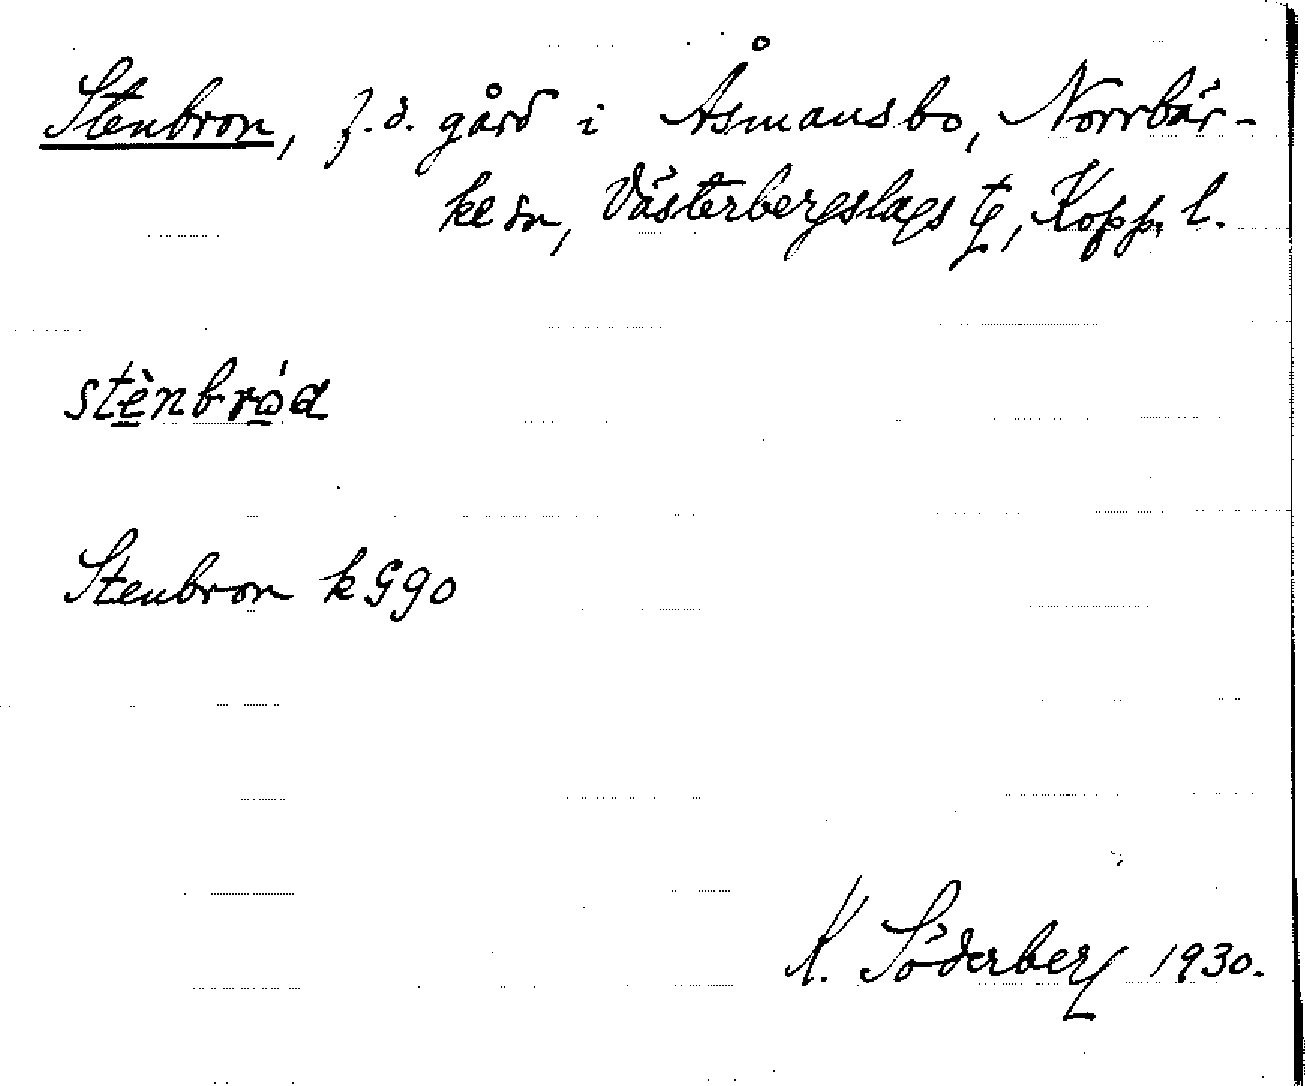 Stenbron, f.d. gård i Åsmansbo, Norrbär-
ke sn, Västerbergslags tg, Kopp. l.
stènbróa
Stenbron k G90
K. Söderberg 1930.